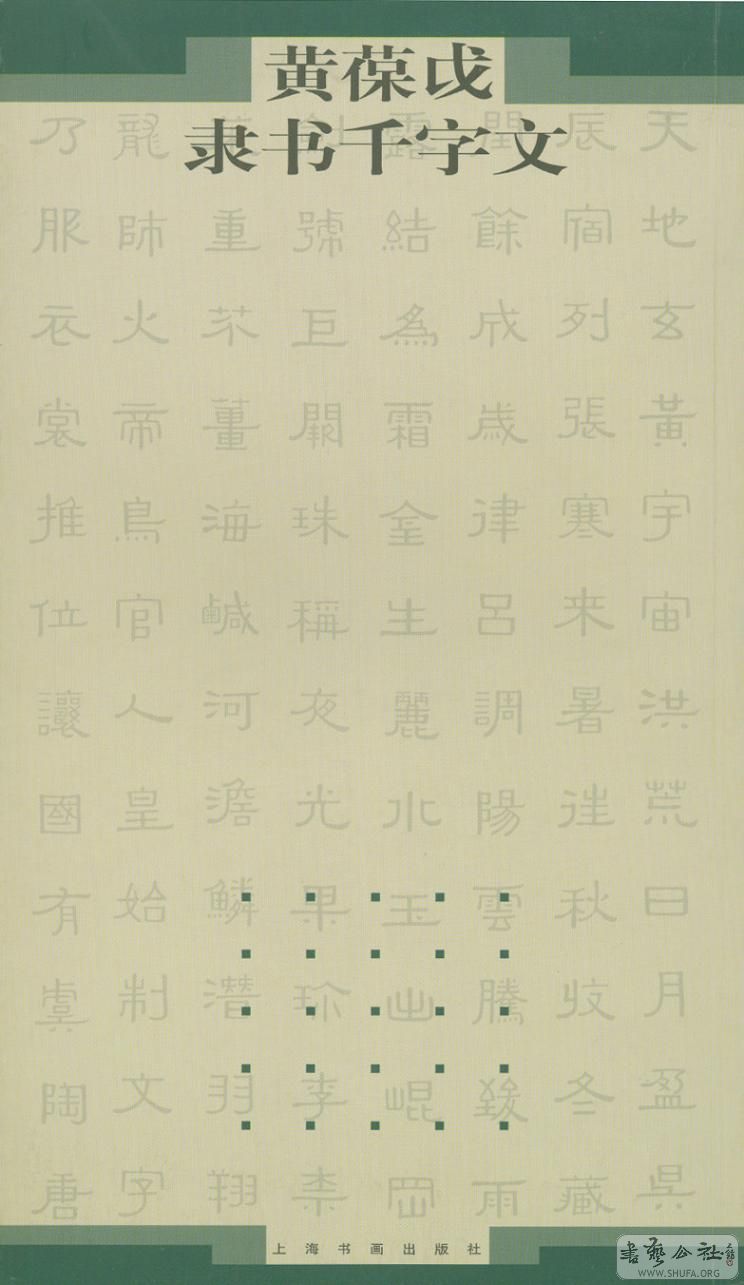 黄葆戉
隶书千字文
天地玄黃宇宙洪荒日月盈昃
辰宿列張寒来暑往秋收冬藏
閏餘成歲律呂調陽雲騰致雨
露結為霜金生麗水玉出崐岡
劍號巨闕珠稱夜光果珍李柰
菜重芥薑海鹹河澹鱗潛羽翔
龍師火帝鳥官人皇始制文字
乃服衣裳推位讓國有虞陶唐
上海书画出版社
書藝公社
WWW.SHUFA.ORG